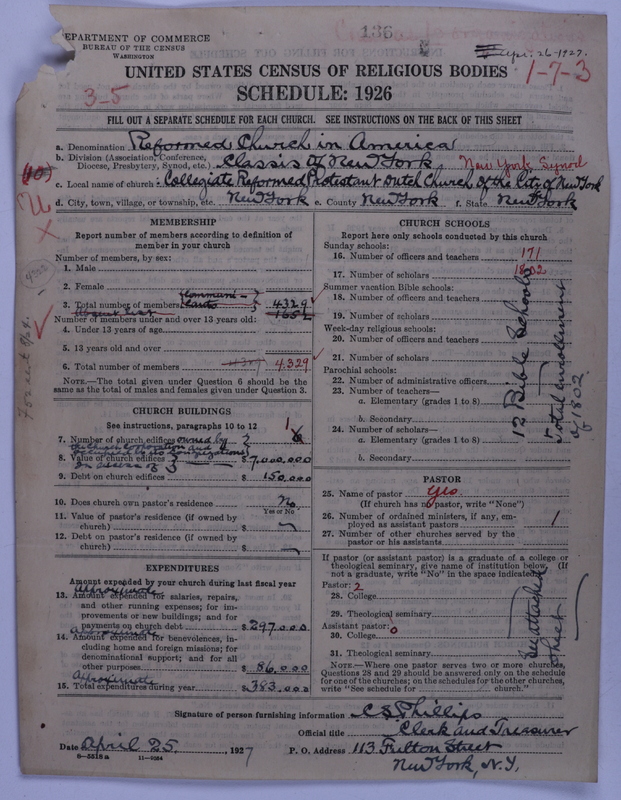 136
DEPARTMENT OF COMMERCE
BUREAU OF THE CENSUS
WASHINGTON
Apr. 26-1927.
UNITED STATES CENSUS OF RELIGIOUS BODIES
1-7-3
3-5
SCHEDULE: 1926
FILL OUT A SEPARATE SCHEDULE FOR EACH CHURCH. SEE INSTRUCTIONS ON THE BACK OF THIS SHEET
a. Denomination Reformed Church in America
b. Division (Association, Conference, Diocese, Presbytery, Synod, etc.) Classis of New York. New York Synod
c. Local name of church Collegiate Reformed Protestant Dutch Church of the City of New York
d. City, town, village, or township, etc. New York e. County New York f. State New York
MEMBERSHIP
Report number of members according to definition of
member in your church
Number of members, by sex:
1. Male
2. Female
3. Total number of members Communicants 4329
Absent list 1652
Number of members under and over 13 years old:
4. Under 13 years of age
5. 13 years old and over
6. Total number of members 4.329
NOTE.—The total given under Question 6 should be the
same as the total of males and females given under Question 3.
CHURCH BUILDINGS
See instructions, paragraphs 10 to 12
7. Number of church edifices owned by 1 6
the church corporation and
occupied by its congregations
8. Value of church edifices $7,000,000
In excess of
9. Debt on church edifices $ 150,000
10. Does church own pastor's residence No
Yes or No
11. Value of pastor's residence (if owned by
church) $
12. Debt on pastor's residence (if owned by
church) $
EXPENDITURES
Amount expended by your church during last fiscal year
Aproximate
13. Amount expended for salaries, repairs,
and other running expenses; for im-
provements or new buildings; and for
payments on church debt $297,000
Aproximate
14. Amount expended for benevolences, in-
cluding home and foreign missions; for
denominational support; and for all
other purposes $ 86,000
Aproximate
15. Total expenditures during year $383,000
CHURCH SCHOOLS
Report here only schools conducted by this church
Sunday schools:
16. Number of officers and teachers 171
17. Number of scholars 1802
Summer vacation Bible schools:
18. Number of officers and teachers
19. Number of scholars
Week-day religious schools:
20. Number of officers and teachers
21. Number of scholars
Parochial schools:
22. Number of administrative officers
23. Number of teachers—
a. Elementary (grades 1 to 8)
b. Secondary
24. Number of scholars—
a. Elementary (grades 1 to 8)
b. Secondary
12 Bible Schools
Total enrollment
of 1802.
PASTOR
25. Name of pastor Yes
(If church has no pastor, write "None")
26. Number of ordained ministers, if any, em-
ployed as assistant pastors 1
27. Number of other churches served by the
pastor or his assistants
If pastor (or assistant pastor) is a graduate of a college or
theological seminary, give name of institution below. (If
not a graduate, write "No" in the space indicated)
Pastor: 2
28. College
29. Theological seminary
Assistant pastor: 0
30. College
31. Theological seminary
See attached
sheet
NOTE.—Where one pastor serves two or more churches,
Questions 28 and 29 should be answered only on the schedule
for one of the churches; on the schedules for the other churches,
write "See schedule for church."
Signature of person furnishing information C S Phillips
Official title Clerk and Treasurer
Date April 25, 1927 P. O. Address 113 Fulton Street
New York, N.Y.
8—5518 a 11—9264